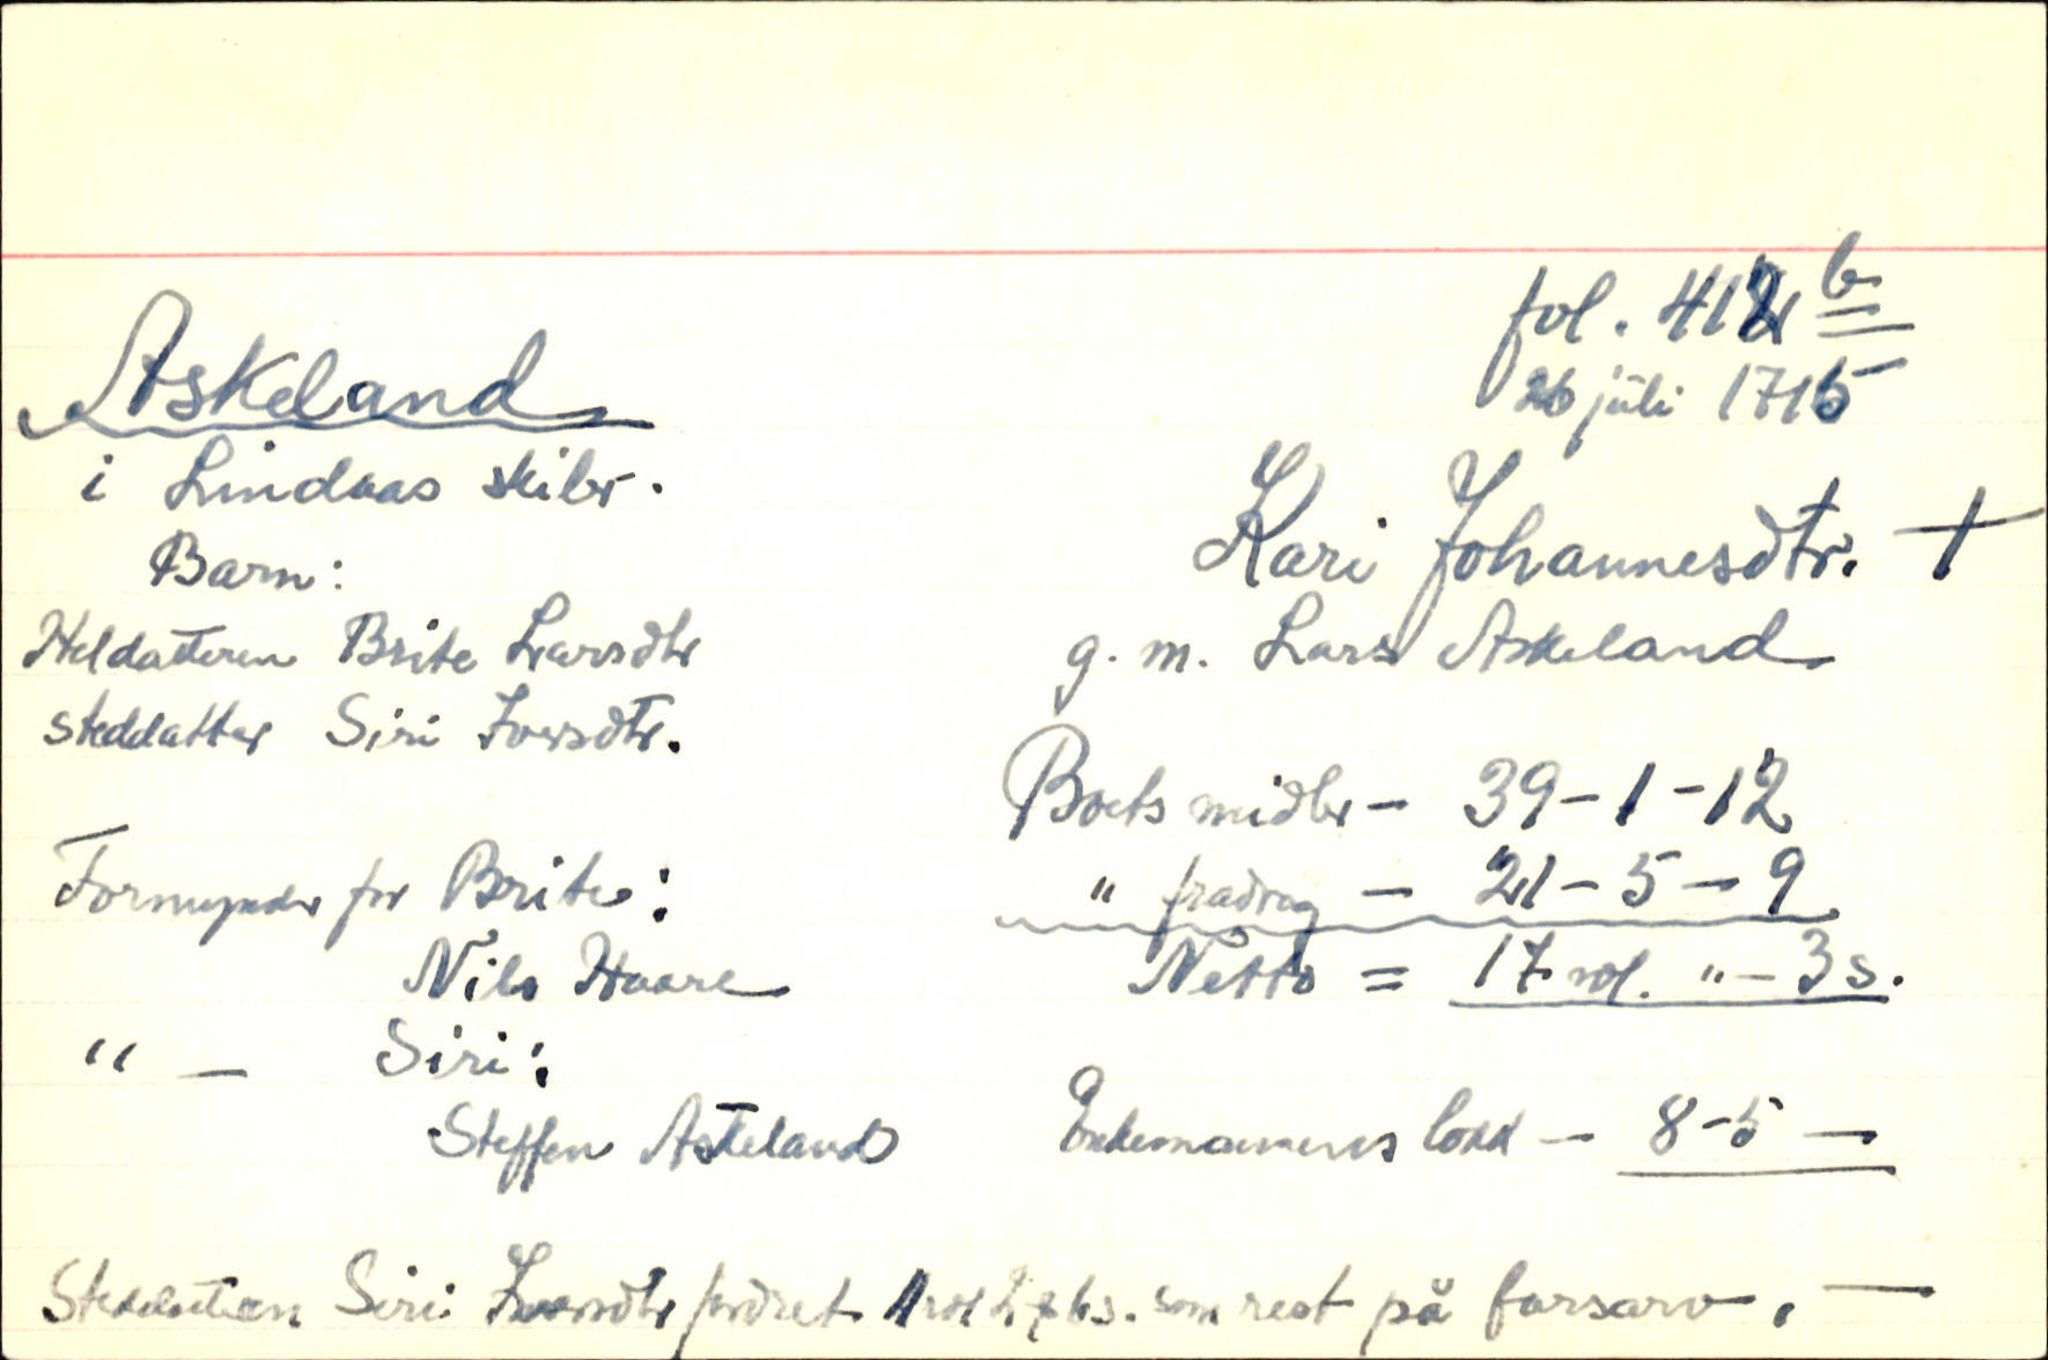 fol. 412 b
26 juli 1715
Askeland
i Lindaas skibr.
Kari Johannesdtr. +
g. m. Lars Askeland
Barn:
Heldatteren Brite Larsdtr
steddatter Siri Iversdtr.
Boets midler - 39-1-12
" fradrag - 21-5-9
Netto = 17 rdl. "-3 s.
Formynder for Brite:
Nils Haare
" - Siri:
Steffen Askeland
Enkemannens lodd - 8-5 -
Steddatteren Siri Iversdtr fordret som rest på farsarv. -